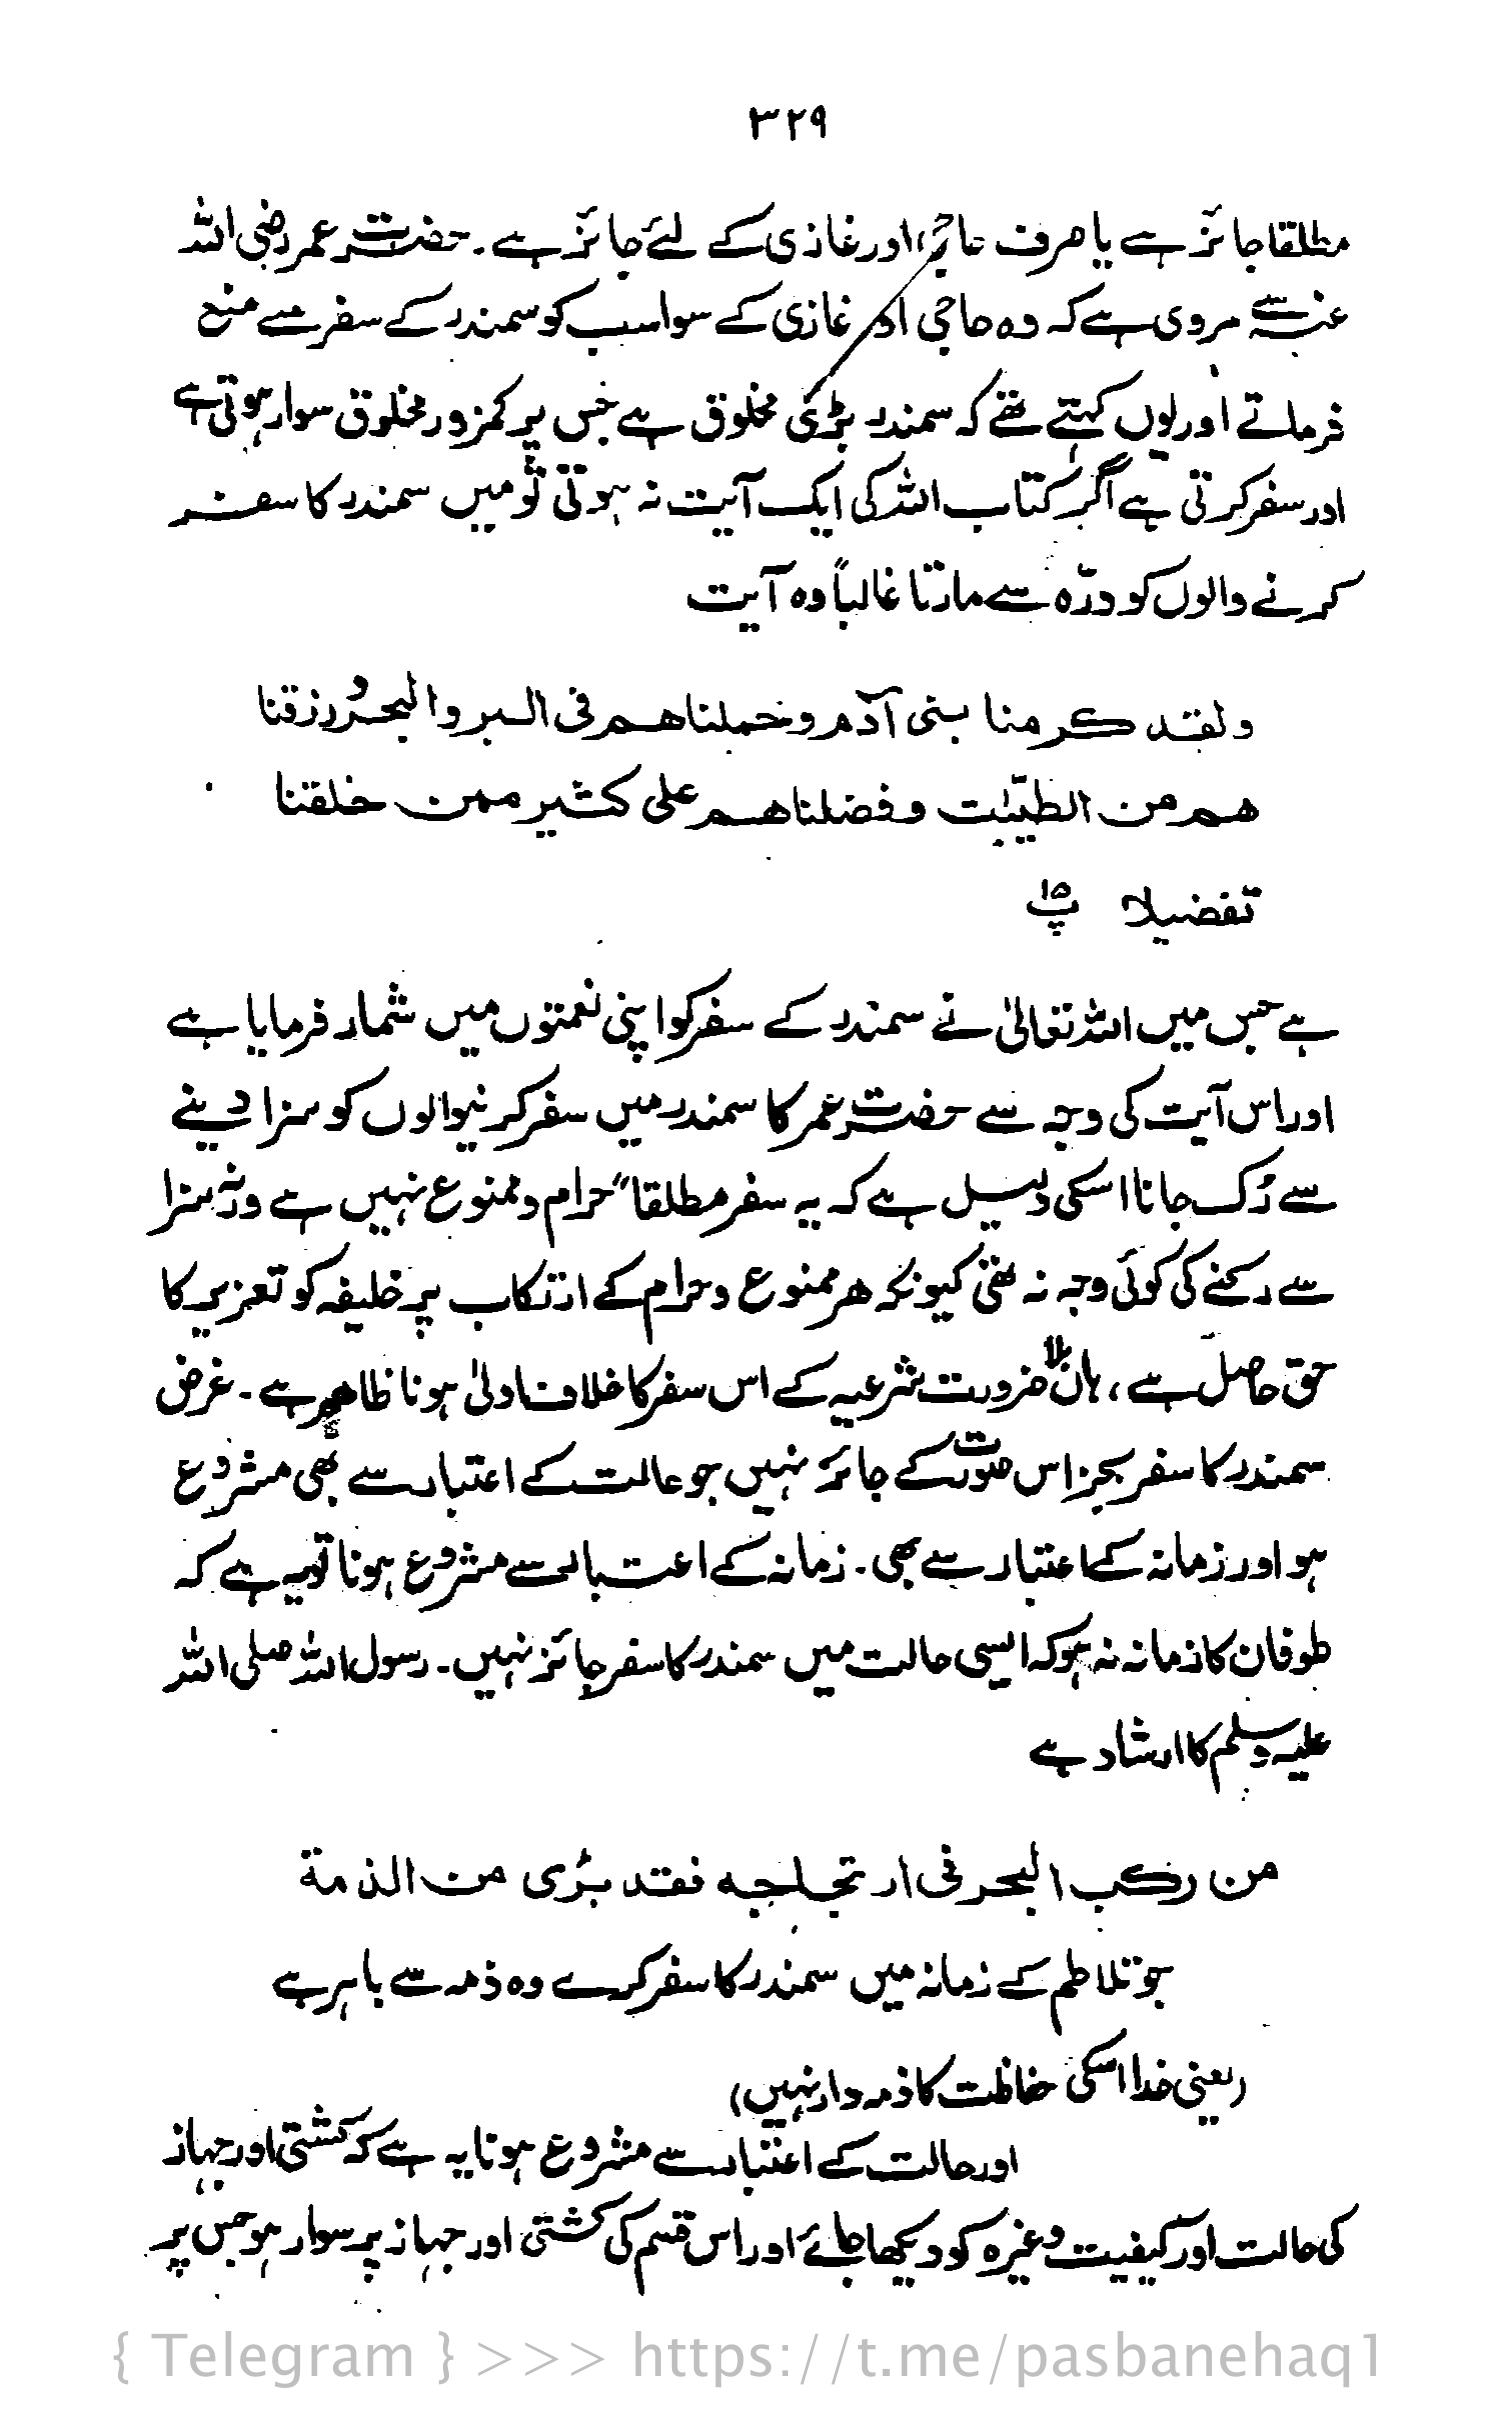 ۳۲۹
مطلقا جائز ہے یا صرف حاجی اور غازی کے لئے جائز ہے۔ حضرت عمر رضی اللہ
عنہ سے مروی ہے کہ وہ حاجی اور غازی کے سوا سب کو سمندر کے سفر سے منع
فرماتے اور یوں کہتے تھے کہ سمندر بڑی مخلوق ہے جس پر کمزور مخلوق سوار ہوتی ہے
اور سفر کرتی ہے اگر کتاب اللہ کی ایک آیت نہ ہوتی تو میں سمندر کا سفر
کرنے والوں کو درّہ سے مارتا غالباً وہ آیت
ولقد کرمنا بنی آدم وحملناهم فی البر والبحر ورزقنا
هم من الطیّبٰت وفضلناهم علی کثیر ممن خلقنا
تفضیلا پ۱۵
ہے جس میں اللہ تعالیٰ نے سمندر کے سفر کو اپنی نعمتوں میں شمار فرمایا ہے
اور اس آیت کی وجہ سے حضرت عمر کا سمندر میں سفر کرنیوالوں کو سزا دینے
سے رُک جانا اسکی دلیل ہے کہ یہ سفر مطلقاً حرام و ممنوع نہیں ہے ورنہ سزا
سے رکنے کی کوئی وجہ نہ تھی کیونکہ ہر ممنوع و حرام کے ارتکاب پر خلیفہ کو تعزیر کا
حق حاصل ہے، ہاں بلا ضرورت شرعیہ کے اس سفر کا خلاف اولیٰ ہونا ظاہر ہے۔ غرض
سمندر کا سفر بجز اس صورت کے جائز نہیں جو حالت کے اعتبار سے بھی مشروع
ہو اور زمانہ کے اعتبار سے بھی۔ زمانہ کے اعتبار سے مشروع ہونا تو یہ ہے کہ
طوفان کا زمانہ نہ ہو کہ ایسی حالت میں سمندر کا سفر جائز نہیں۔ رسول اللہ صلی اللہ
علیہ وسلم کا ارشاد ہے
من رکب البحر فی ارتجاجه فقد برٔی من الذمة
جو تلاطم کے زمانہ میں سمندر کا سفر کرے وہ ذمہ سے باہر ہے
(یعنی خدا اسکی حفاظت کا ذمہ دار نہیں)
اور حالت کے اعتبار سے مشروع ہونا یہ ہے کہ کشتی اور جہاز
کی حالت اور کیفیت وغیرہ کو دیکھا جائے اور اس قسم کی کشتی اور جہاز پر سوار ہو جس پر
{ Telegram } >>> https://t.me/pasbanehaq1